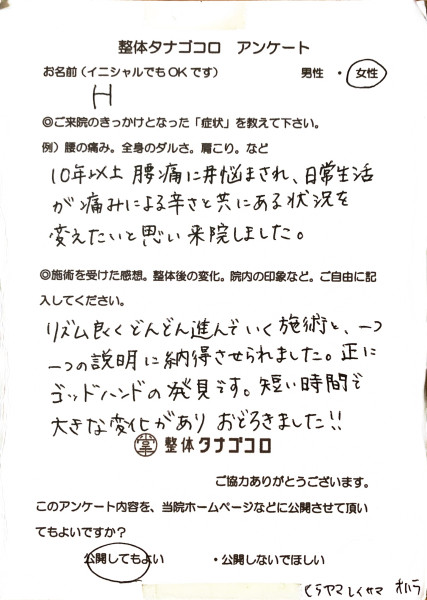 整体タナゴコロ アンケート
お名前(イニシャルでもOKです) 男性 ・ 女性
H
◎ご来院のきっかけとなった「症状」を教えて下さい。
例)腰の痛み。全身のダルさ。肩こり。など
10年以上 腰痛に悩まされ、日常生活
が痛みによる辛さと共にある状況を
変えたいと思い来院しました。
◎施術を受けた感想。整体後の変化。院内の印象など。ご自由に記
入してください。
リズム良くどんどん進んでいく施術と、一つ
一つの説明に納得させられました。正に
ゴッドハンドの発見です。短い時間で
大きな変化があり おどろきました!!
掌 整体タナゴコロ
ご協力ありがとうございます。
このアンケート内容を、当院ホームページなどに公開させて頂い
てもよいですか?
公開してもよい ・公開しないでほしい